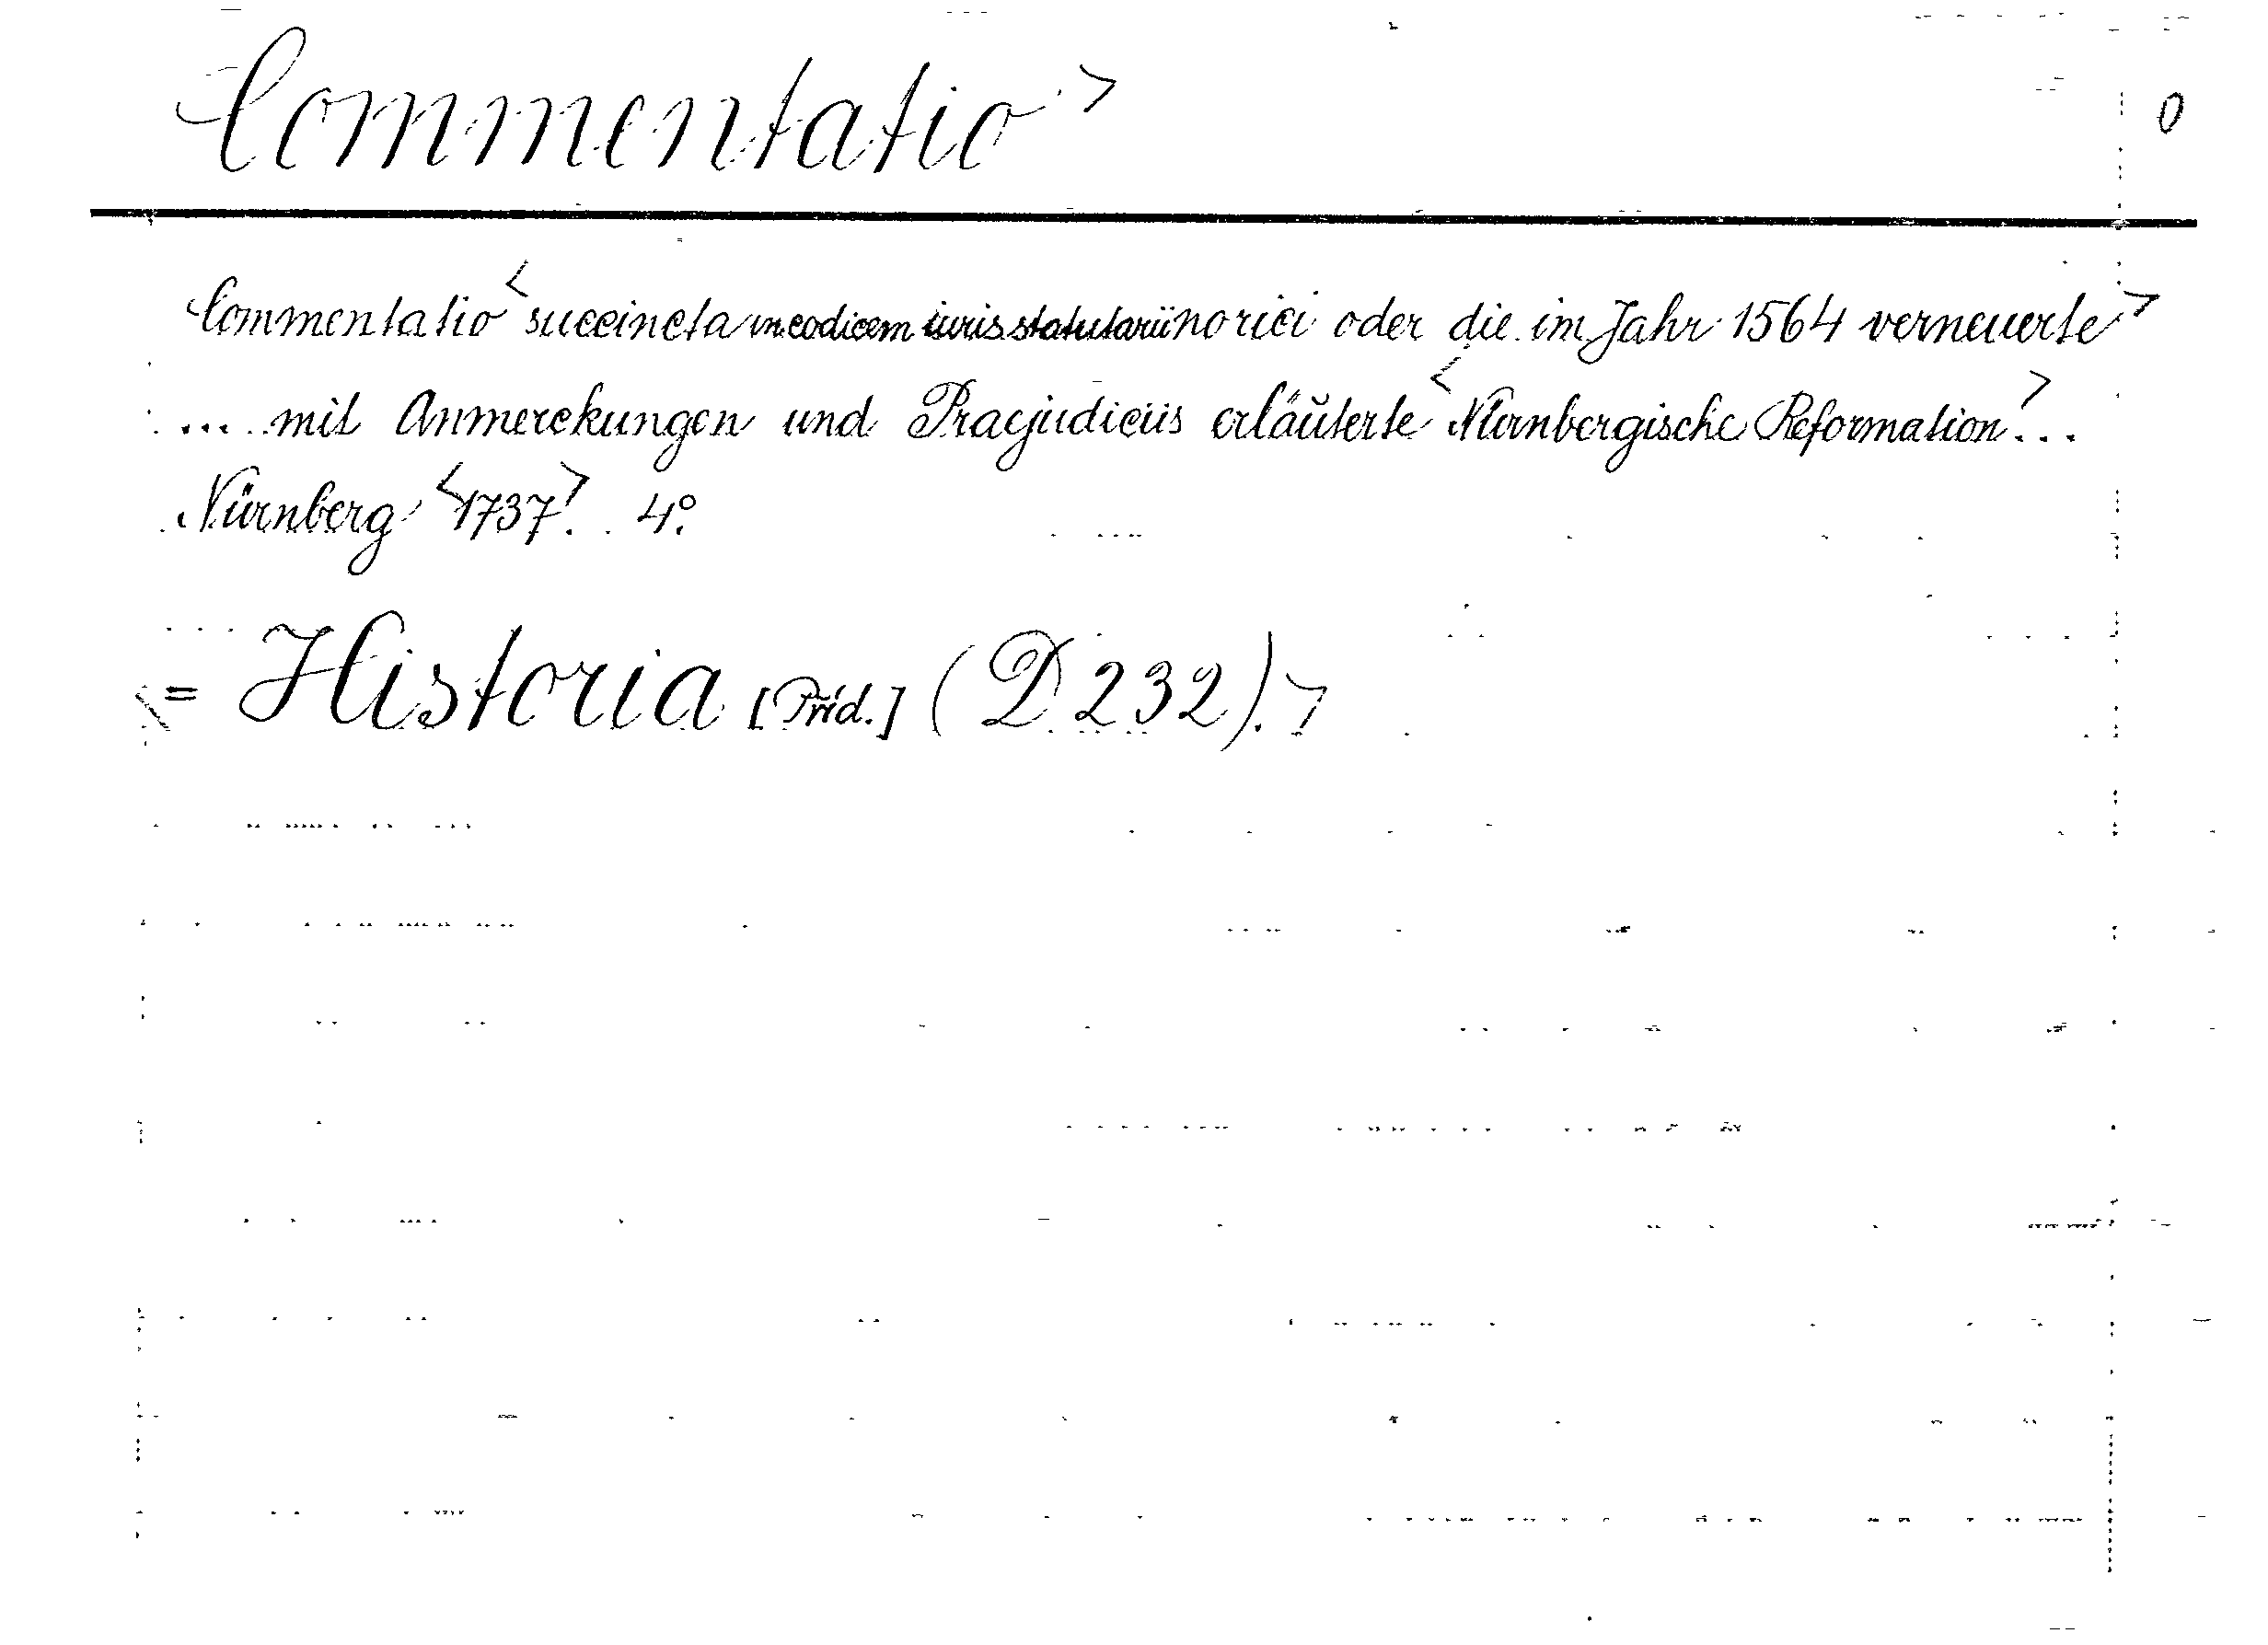 Commentatio >
0
Commentatio < succincta in codicem iuris statutarii norici oder die im Jahr 1564 verneuerte >
... mit Anmerckungen und Praejudiciis erläuterte < Nürnbergische Reformation > ...
Nürnberg < 1737 >. 4°.
= Historia [Präd.] (D 232). >